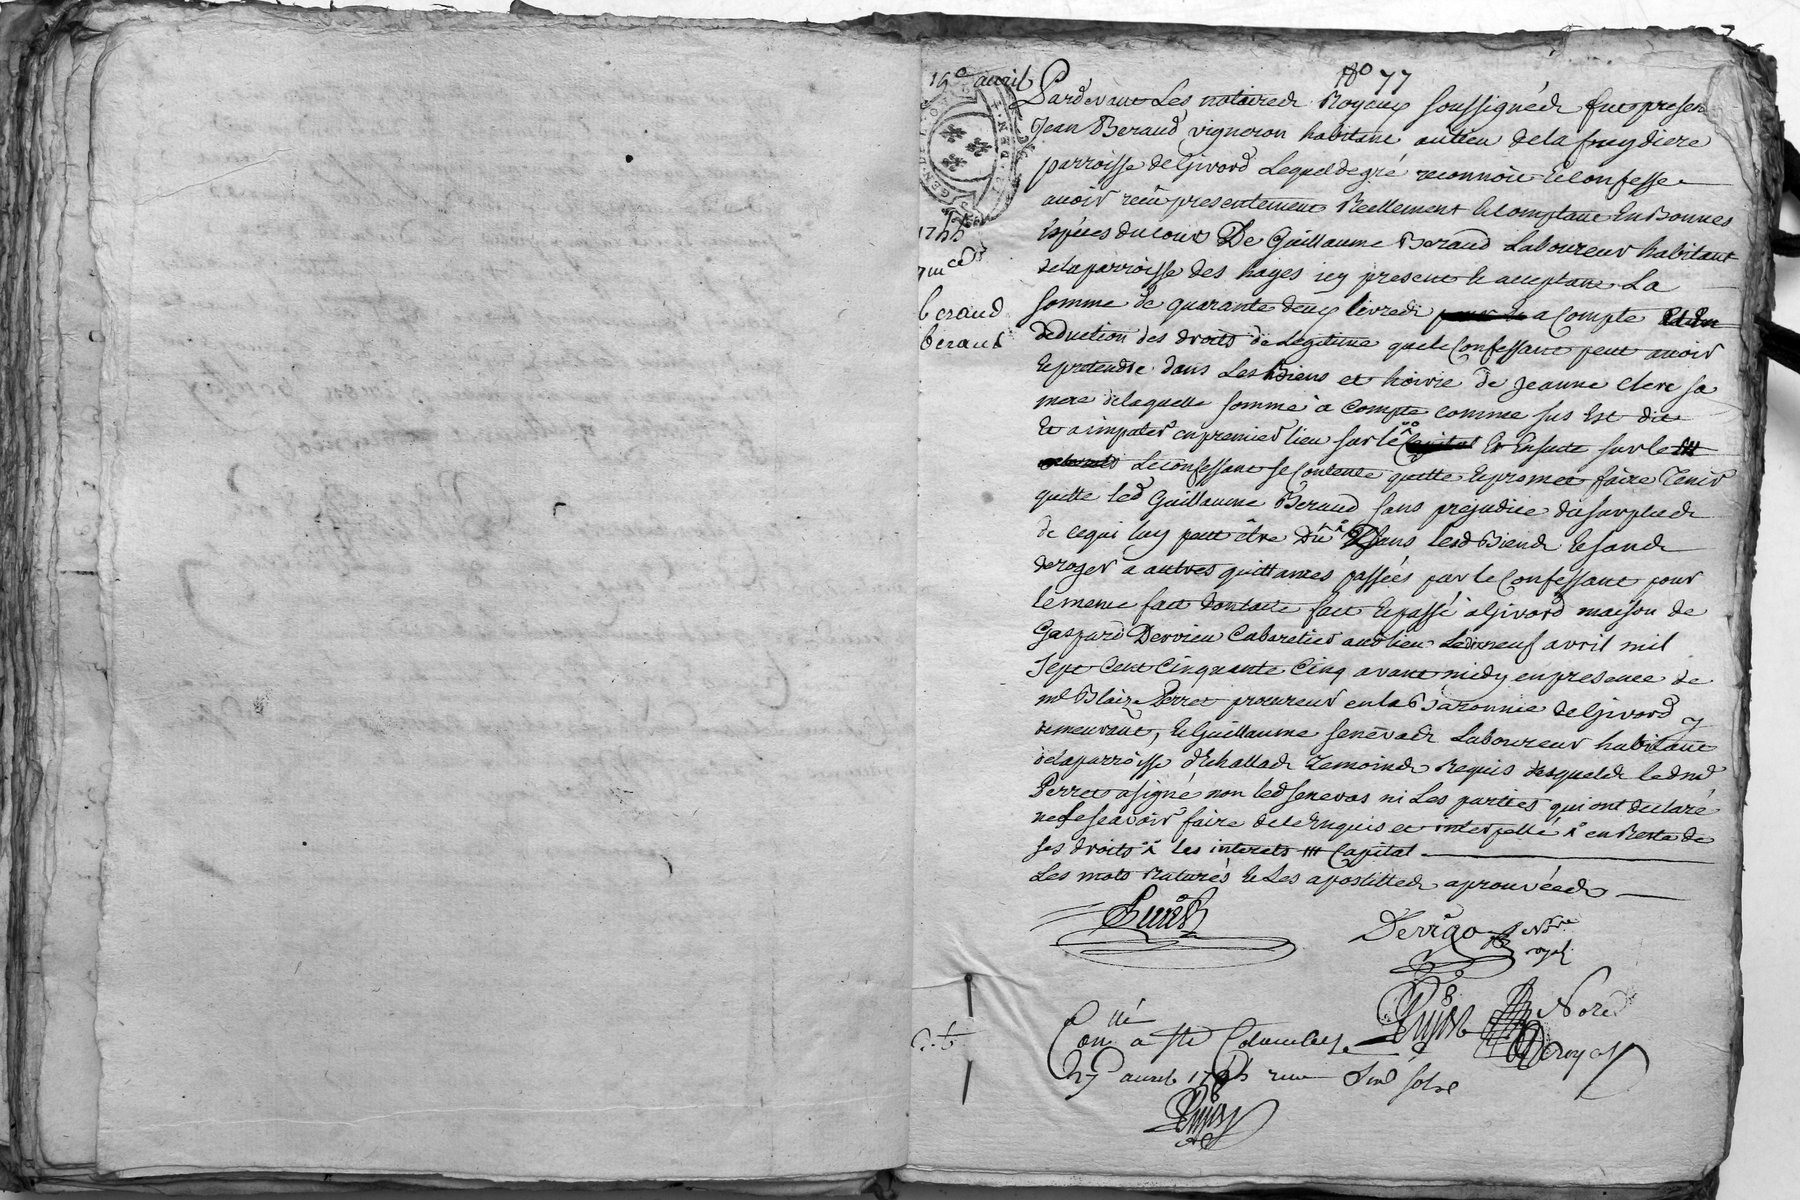 19e avril
No 77
Pardevant Les notaires Royaux soussignés fut presen
Jean Beraud vigneron habitant au lieu de la freydiere
parroisse de Givord Lequel de gré reconnoit et confesse
avoir reçu presentement Reellement et comptant En Bonnes
Espéces du cour De Guillaume Beraud Laboureur habitant
de la parroisse des hayes icy present et acceptant La
somme de quarante deux livres a Compte Et En
deduction des droits de Legitime que le Confessant peut avoir
et pretendre dans Les Biens et hoirie de jeanne clerc sa
mere de laquelle somme a compte comme sus Est dit
Et a imputer en premier lieu sur le Capital Et Ensuite sur le
Le confessant se Contente quitte et promet faire Tenir
quitte led Guillaume Beraud sans prejudice du surplus
de ce qui luy peut être Dû Dans lesd Biens et sans
deroger a autres quittances passées par le Confessant pour
le meme fait dont acte fait et passé a Givord maison de
Gaspard Dervieu Cabaretier aud lieu Le dixneuf avril mil
Sept Cent Cinquante Cinq avant midy en presence de
me Blaize Perret procureur en la Baronnie de Givord y
demeurant, et Guillaume senevas Laboureur habitant
de la parroisse d'Echallas Temoins Requis desquels led me
Perret a signé non led Senevas ni Les parties qui ont declaré
ne le sçavoir faire de ce Enquis et interpellé en Reste de
ses droits Les interets Capital
Les mots Raturés et Les apostilles aprouvées
1755
quice
beraud
beraud
Perret
Nore
royal
Conlé a Ste Colombe
27 avril 1755 reçu